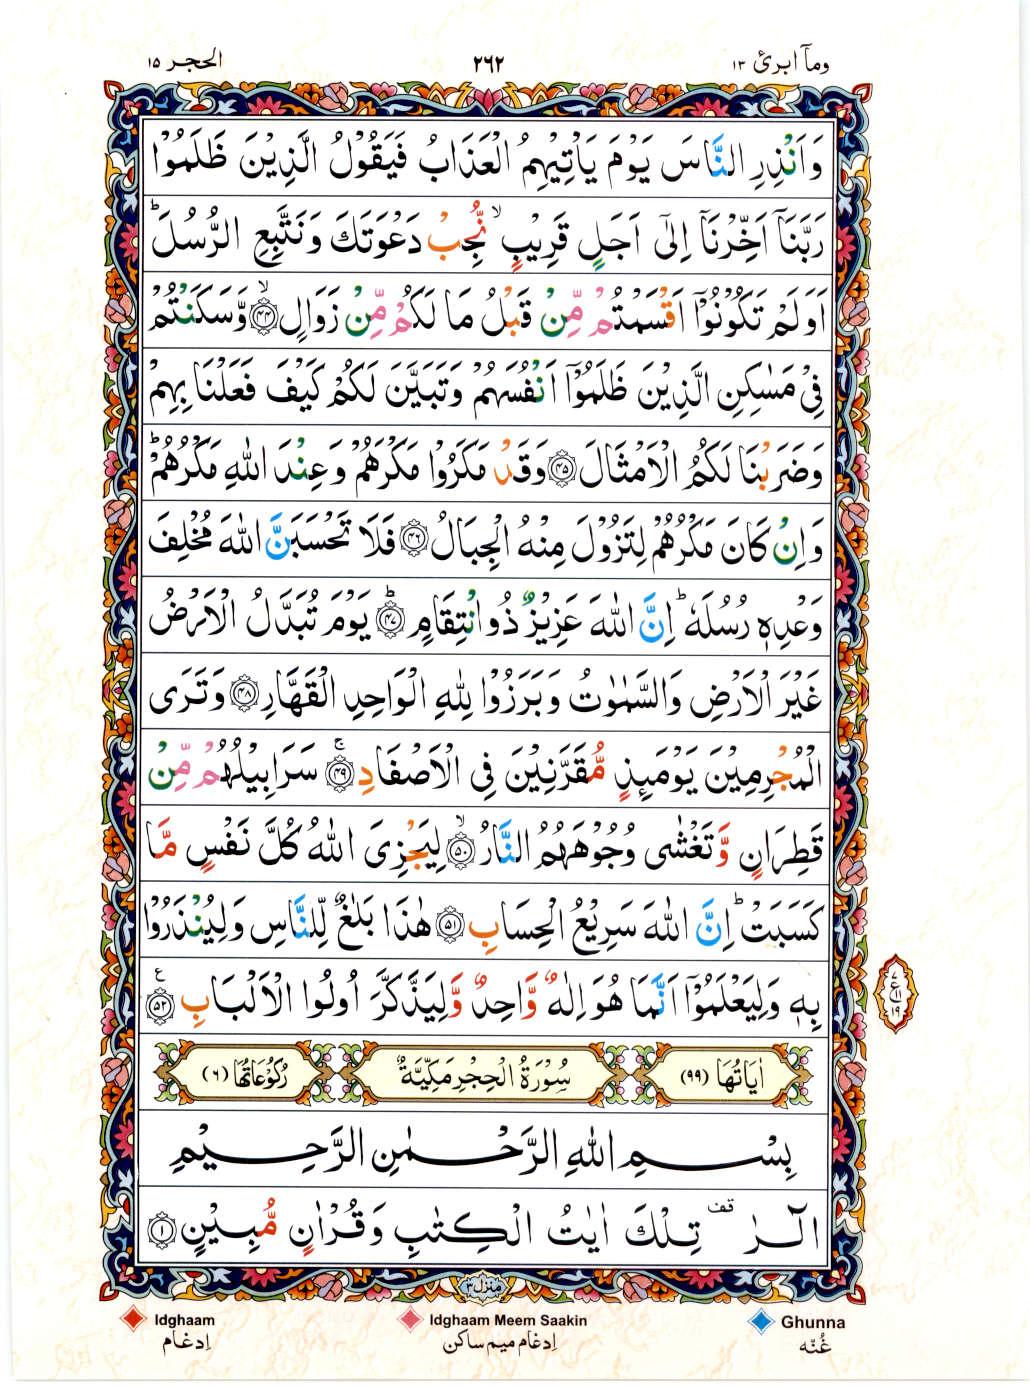 ومآ ابرئ ١٣
٢٦٢
الحجر ١٥
وَاَنْذِرِ النَّاسَ يَوْمَ يَاْتِيْهِمُ الْعَذَابُ فَيَقُوْلُ الَّذِيْنَ ظَلَمُوْا
رَبَّنَاۤ اَخِّرْنَاۤ اِلٰۤى اَجَلٍ قَرِيْبٍ ۙ نُّجِبْ دَعْوَتَكَ وَنَتَّبِعِ الرُّسُلَ ؕ
اَوَلَمْ تَكُوْنُوْۤا اَقْسَمْتُمْ مِّنْ قَبْلُ مَا لَكُمْ مِّنْ زَوَالٍ ۙ‏﴿۴۴﴾ وَّسَكَنْتُمْ
فِىْ مَسٰكِنِ الَّذِيْنَ ظَلَمُوْۤا اَنْفُسَهُمْ وَتَبَيَّنَ لَكُمْ كَيْفَ فَعَلْنَا بِهِمْ
وَضَرَبْنَا لَكُمُ الْاَمْثَالَ ﴿۴۵﴾ وَقَدْ مَكَرُوْا مَكْرَهُمْ وَعِنْدَ اللّٰهِ مَكْرُهُمْ ؕ
وَاِنْ كَانَ مَكْرُهُمْ لِتَزُوْلَ مِنْهُ الْجِبَالُ ﴿۴۶﴾ فَلَا تَحْسَبَنَّ اللّٰهَ مُخْلِفَ
وَعْدِهٖ رُسُلَهٗ ؕ اِنَّ اللّٰهَ عَزِيْزٌ ذُو انْتِقَامٍ ؕ﴿۴۷﴾ يَوْمَ تُبَدَّلُ الْاَرْضُ
غَيْرَ الْاَرْضِ وَالسَّمٰوٰتُ وَبَرَزُوْا لِلّٰهِ الْوَاحِدِ الْقَهَّارِ ﴿۴۸﴾ وَتَرَى
الْمُجْرِمِيْنَ يَوْمَٮِٕذٍ مُّقَرَّنِيْنَ فِى الْاَصْفَادِ ۚ﴿۴۹﴾ سَرَابِيْلُهُمْ مِّنْ
قَطِرَانٍ وَّتَغْشٰى وُجُوْهَهُمُ النَّارُ ۙ﴿۵۰﴾ لِيَجْزِىَ اللّٰهُ كُلَّ نَفْسٍ مَّا
كَسَبَتْ ؕ اِنَّ اللّٰهَ سَرِيْعُ الْحِسَابِ ﴿۵۱﴾ هٰذَا بَلٰغٌ لِّلنَّاسِ وَلِيُنْذَرُوْا
بِهٖ وَلِيَعْلَمُوْۤا اَنَّمَا هُوَ اِلٰهٌ وَّاحِدٌ وَّلِيَذَّكَّرَ اُولُوا الْاَلْبَابِ ﴿۵۲﴾ ع
اٰيَاتُهَا (٩٩) سُوْرَةُ الْحِجْرِ مَكِّيَّةٌ رُكُوْعَاتُهَا (٦)
بِسْمِ اللّٰهِ الرَّحْمٰنِ الرَّحِيْمِ
الٓرٰ ࣞ قف تِلْكَ اٰيٰتُ الْكِتٰبِ وَقُرْاٰنٍ مُّبِيْنٍ ﴿۱﴾
منزل ٣
Idghaam
ادغام
Idghaam Meem Saakin
ادغام میم ساکن
Ghunna
غُنّه